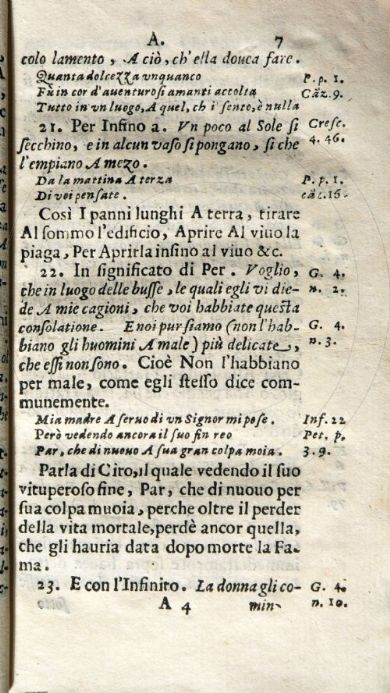 A. 7
colo lamento, A ciò, ch'ella doueа fare.
Quanta dolcezza vnquanco P. p. 1.
Fù in cor d'auenturosi amanti accolta Cãz. 9.
Tutto in vn luogo, A quel, ch i' sento, è nulla
21. Per Infino a. Vn poco al Sole si Cresc.
secchino, e in alcun vaso si pongano, si che 4. 46.
l'empiano A mezo.
Da la mattina A terza P. p. 1.
Di voi pensate. cãz. 16.
Così I panni lunghi A terra, tirare
Al sommo l'edificio, Aprire Al viuo la
piaga, Per Aprirla insino al viuo &c.
22. In significato di Per. Voglio, G. 4.
che in luogo delle busse, le quali egli vi die- n. 2.
de A mie cagioni, che voi habbiate questa
consolatione. E noi pur siamo (non l'hab- G. 4.
biano gli huomini A male) più delicate, n. 3.
che essi non sono. Cioè Non l'habbiano
per male, come egli stesso dice com-
munemente.
Mia madre A seruo di vn Signor mi pose. Inf. 22
Però vedendo ancora il suo fin reo Pet. p.
Par, che di nuouo A sua gran colpa moia. 3. 9.
Parla di Ciro, il quale vedendo il suo
vituperoso fine, Par, che di nuouo per
sua colpa muoia, perche oltre il perder
della vita mortale, perdè ancor quella,
che gli hauria data dopo morte la Fa-
ma.
23. E con l'Infinito. La donna gli co- G. 4.
A 4 min- n. 10.